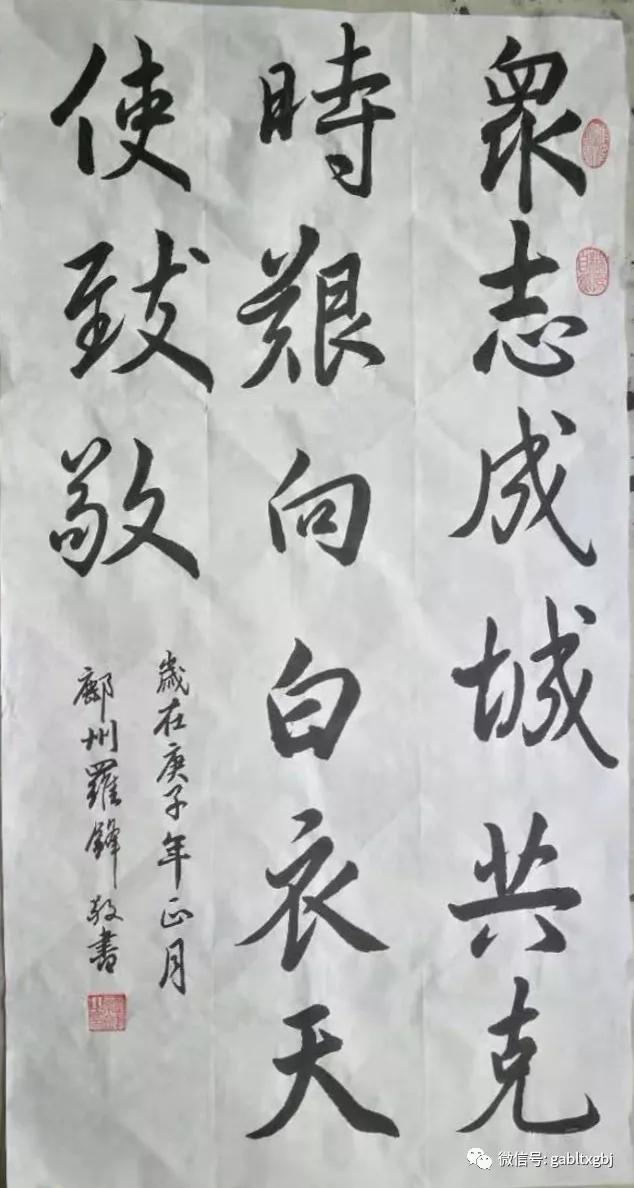 眾志成城共克
時艱向白衣天
使致敬
歲在庚子年正月
鄜州羅鋒敬書
微信号: gabltxgbj